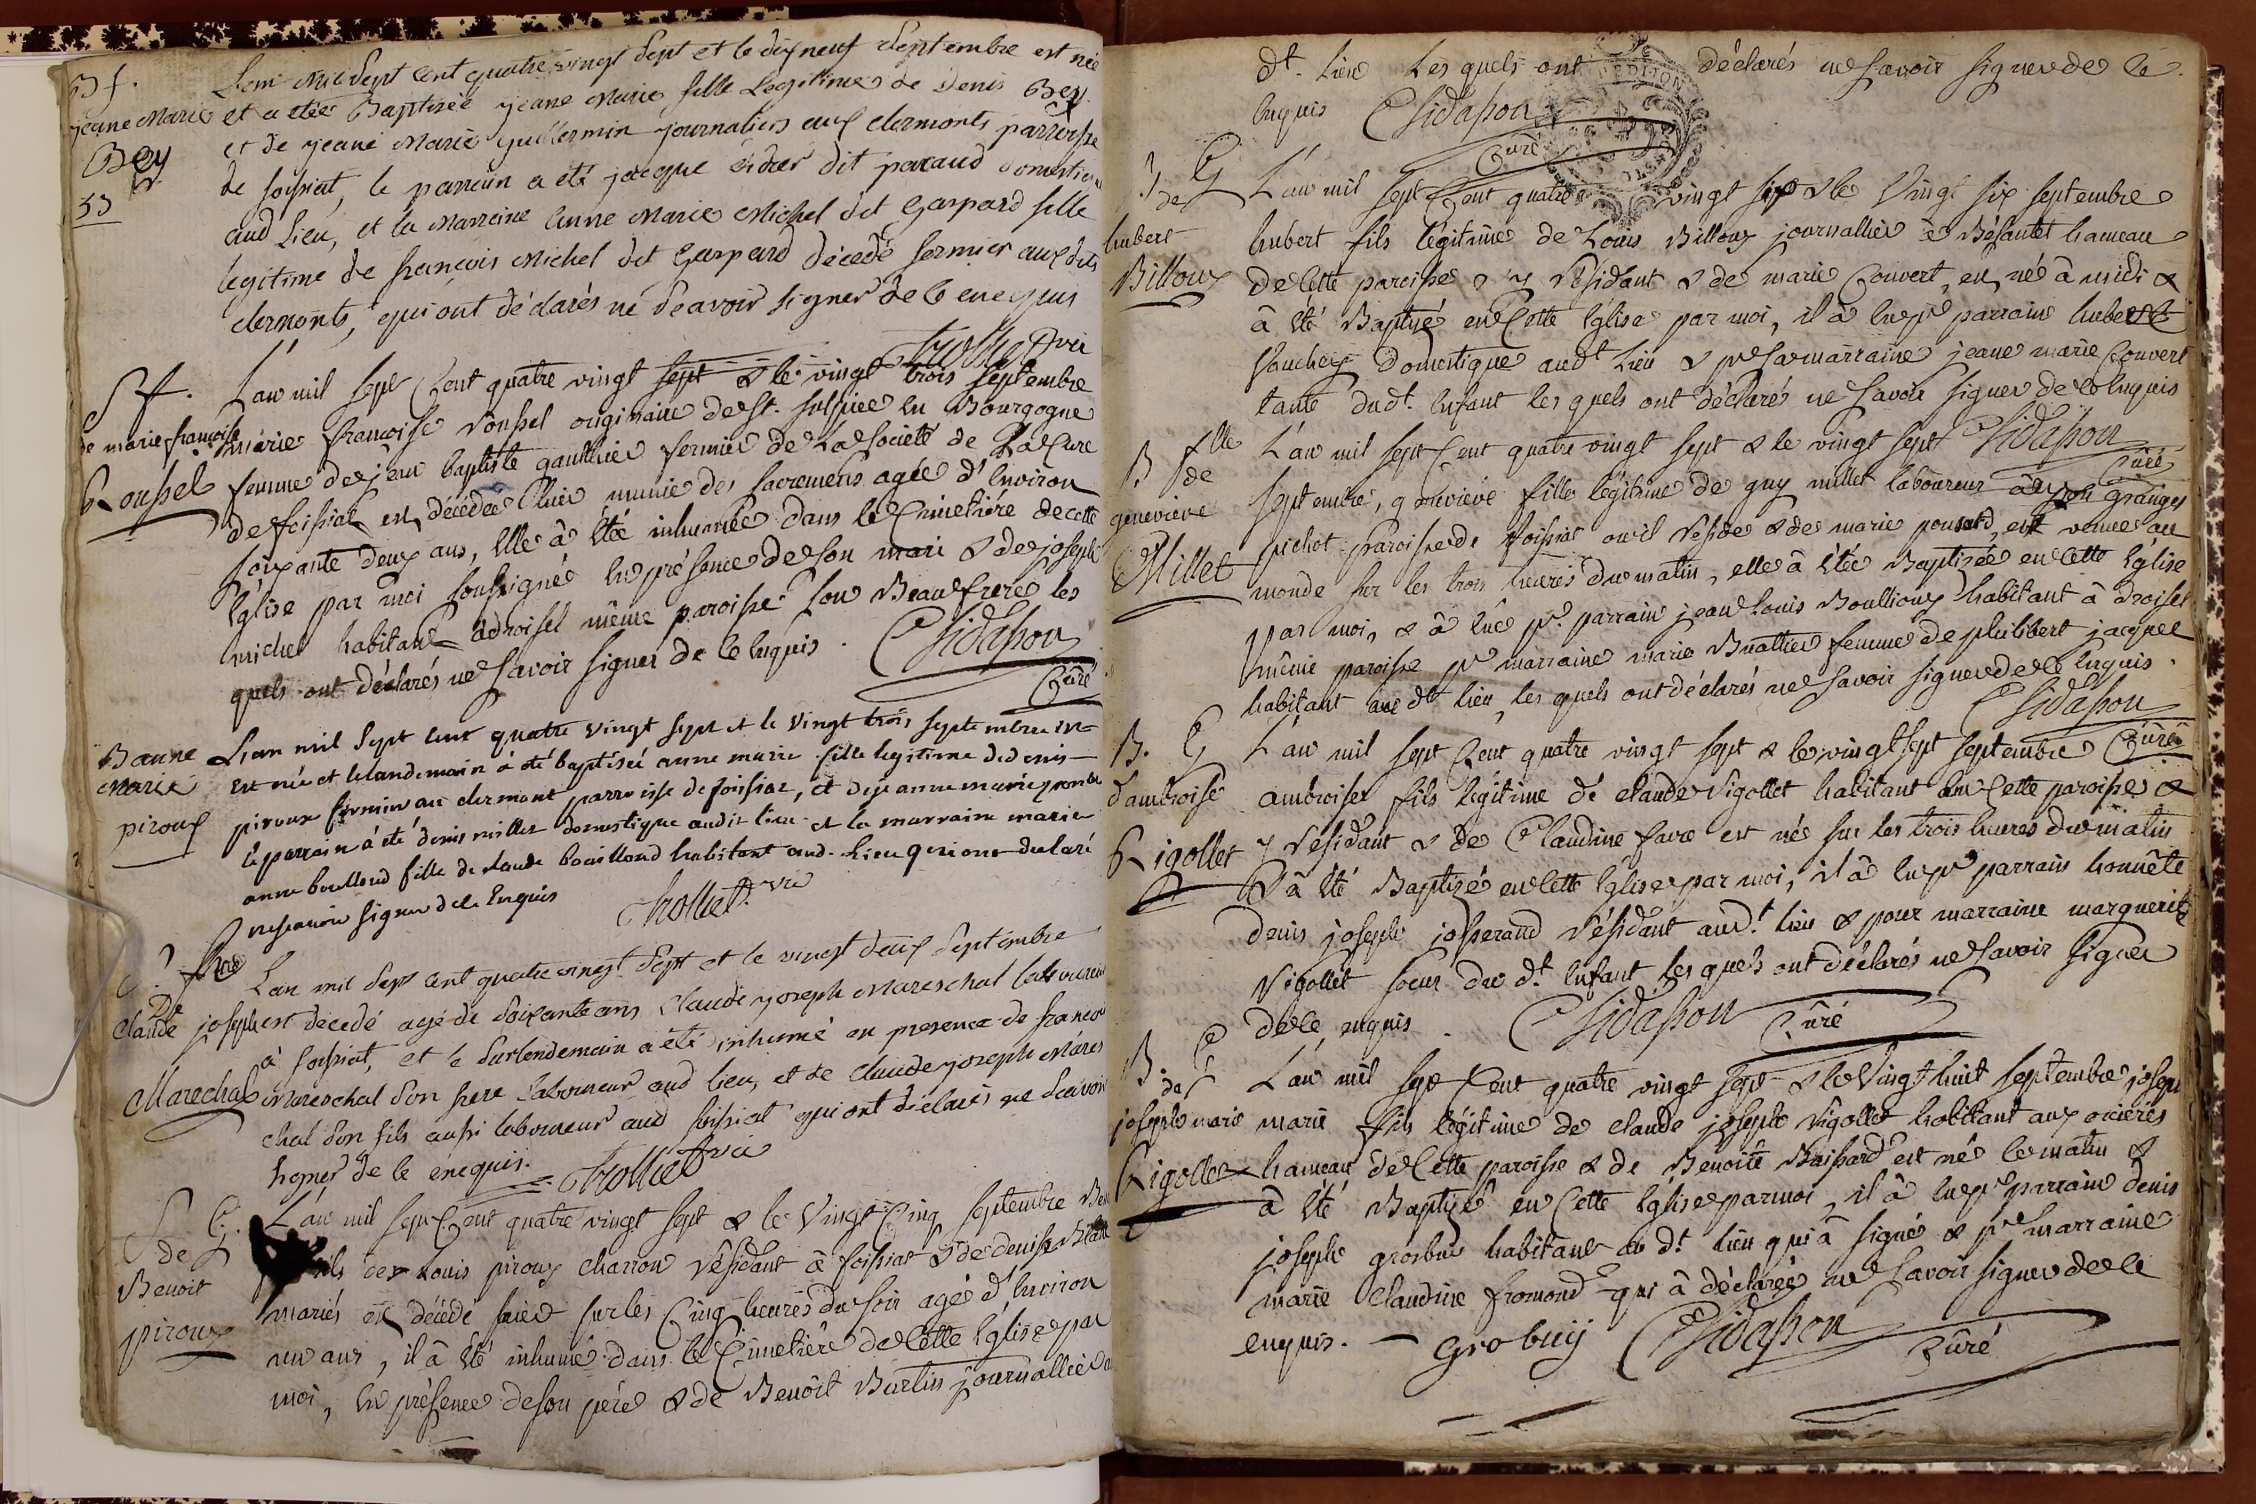 B f.
jeane Marie
Bey
53
L'an mil sept cent quatre vingt sept et le dix neuf septembre est née
et a etée Baptisée jeane Marie fille Legitime de Denis Bey
et de jeane Marie guillermin journaliers aux clermonts parroisse
de foissiat, le parrein a été jacque dit pacaud domestique
aud Lieu, et la Marreine Anne Marie Michel dit Gaspard fille
legitime de francois Michel dit Gaspard décedé fermier aux dits
clermonts, qui ont déclarés ne sçavoir signer de ce enequis
chollet vic
S f.
de marie francoise
Roussel
L'an mil sept Cent quatre vingt sept & le vingt trois septembre
marie francoise Roussel originaire de st. sulpice en Bourgogne
femme de jean baptiste gauthier fermier de La societé de La Cure
de foissiat est décédée hier munie des sacremens agée d'environ
soixante deux ans, elle à été inhumée dans le Cimetière de cette
Eglise par moi soussigné en présence de son mari & de joseph
michel habitant à droisel même paroisse son Beau frere les
quels ont déclarés ne savoir signer de ce enquis.
Sidasson
Curé
B anne
Marie
piroux
L'an mil sept cent quatre vingt sept et le vingt trois septembre
est née et lelandemain à été baptisée anne marie fille legitime de denis
piroux fermier au clermont parroisse de foissiat, et de jeanne marie
le parrain à été denis millet domestique audit lieu et la marraine marie
anne boullioud fille de claude bouilloud habitant aud. Lieu qui ont declaré
ne savoir signer de ce Enquis
chollet vic
S. f
De
Claude joseph
Marechal
L'an mil sept cent quatre vingt sept et le vingt deux septembre
est décedé agé de soixante ans Claude joseph Mareschal laboureur
à foissiat, et le surlendemain a été inhumé en presence de francois
Mareschal son frere laboureur aud lieu, et de claude joseph Mares
chal son fils aussi laboureur aud foissiat qui ont déclarés ne sçavoir
signer de ce enequis.
chollet vic
S G.
de
Benoit
piroux
L'an mil sept Cent quatre vingt sept & le Vingt Cinq septembre Benoit
fils de Louis piroux charron résidant à foissiat & de denise
mariés est décédé hier sur les Cinq heures du soir agé d'environ
un ans, il à été inhumé dans le Cimetière de cette Eglise par
moi, en présence de son père & de Benoit Burtin journallier
dt. Lieu Les quels ont déclarés ne savoir signer de ce
Enquis
Sidasson
Curé
B G
de
hubert
Billoux
L'an mil sept Cent quatre vingt sept & le Vingt six septembre
hubert fils légitime de Louis Billoux journallier à Bésantet hameau
de Cette paroisse & y résidant & de marie Couvert, est né à midi &
à été Baptisé en Cette Eglise par moi, il à eu pr parrain hubert
Vouchey domestique audt. Lieu & pr sa marraine jeane marie Couvert
tante du dt. Enfant les quels ont déclaré ne savoir signer de ce Enquis
Sidasson
Curé
B flle
de
geneviève
Millet
L'an mil sept Cent quatre vingt sept & le vingt sept
septembre, geneviève fille légitime de guy millet laboureur aux granges
pichot paroisse de foissiat ou il reside & de marie ponsard, est venue au
monde sur les trois heures du matin, elle à étée Baptisée en Cette Eglise
par moi, & à eüe pr. parrain jean Louis Boullioux habitant à droisel
même paroisse pr marraine marie Buathier femme de philibert jacquet
habitant au dt. lieu, les quels ont déclarés ne savoir signer de ce Enquis.
Sidasson
Curé
B. G
d'ambroise
Rigollet
L'an mil sept Cent quatre vingt sept & le vingt sept septembre
ambroise fils légitime de claude Rigollet habitant en Cette paroisse &
y résidant & de Claudine favre est né sur les trois heures du matin
& à été Baptisé en Cette Eglise par moi, il à eu pr parrain honnête
denis joseph josserand résidant au dt. lieu & pour marraine marguerite
Rigollet soeur du dt. Enfant les quels ont déclarés ne savoir signer
de ce, enquis.
Sidasson
Curé
B. G
de
joseph marie
Rigollet
L'an mil sept Cent quatre vingt sept & le Vingt huit septembre joseph
marie fils légitime de claude joseph Rigollet habitant aux orcieres
hameau de Cette paroisse & de Benoite Baissard est né le matin &
à été Baptizé en Cette Eglise par moi, il à eu pr parrain denis
joseph grosbuis habitant au dt. lieu qui à signé & pr marraine
marie claudine fromond qui à déclarée ne savoir signer de ce
enquis.
Grobuy
Sidasson
Curé